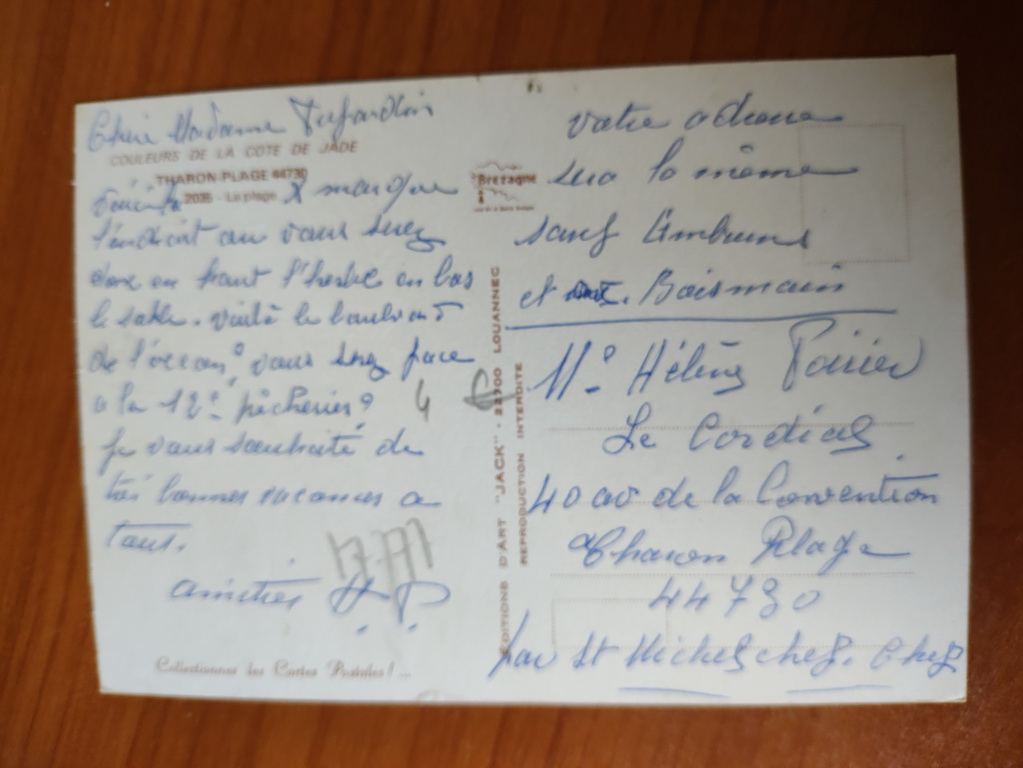 Chère Madame Dujardin
COULEURS DE LA COTE DE JADE
THARON-PLAGE 44730
2035 - La plage
X marque
l'endroit ou vous serez
donc en haut l'herbe en bas
le sable. voilà le boulevard
de l'océan, vous serez face
a la 12e pêcherie
je vous souhaite de
très bonnes vacances a
tous.
amitiés H.P.
Collectionnez les Cartes Postales !...
4 €
Bretagne
EDITIONS D'ART "JACK" - 22700 LOUANNEC
REPRODUCTION INTERDITE
votre adresse
sera la même
sauf
et
Me Hélène Poirier
Le Cordial
40 av de la Convention
Tharon Plage
44730
par St Michel chef. Chef